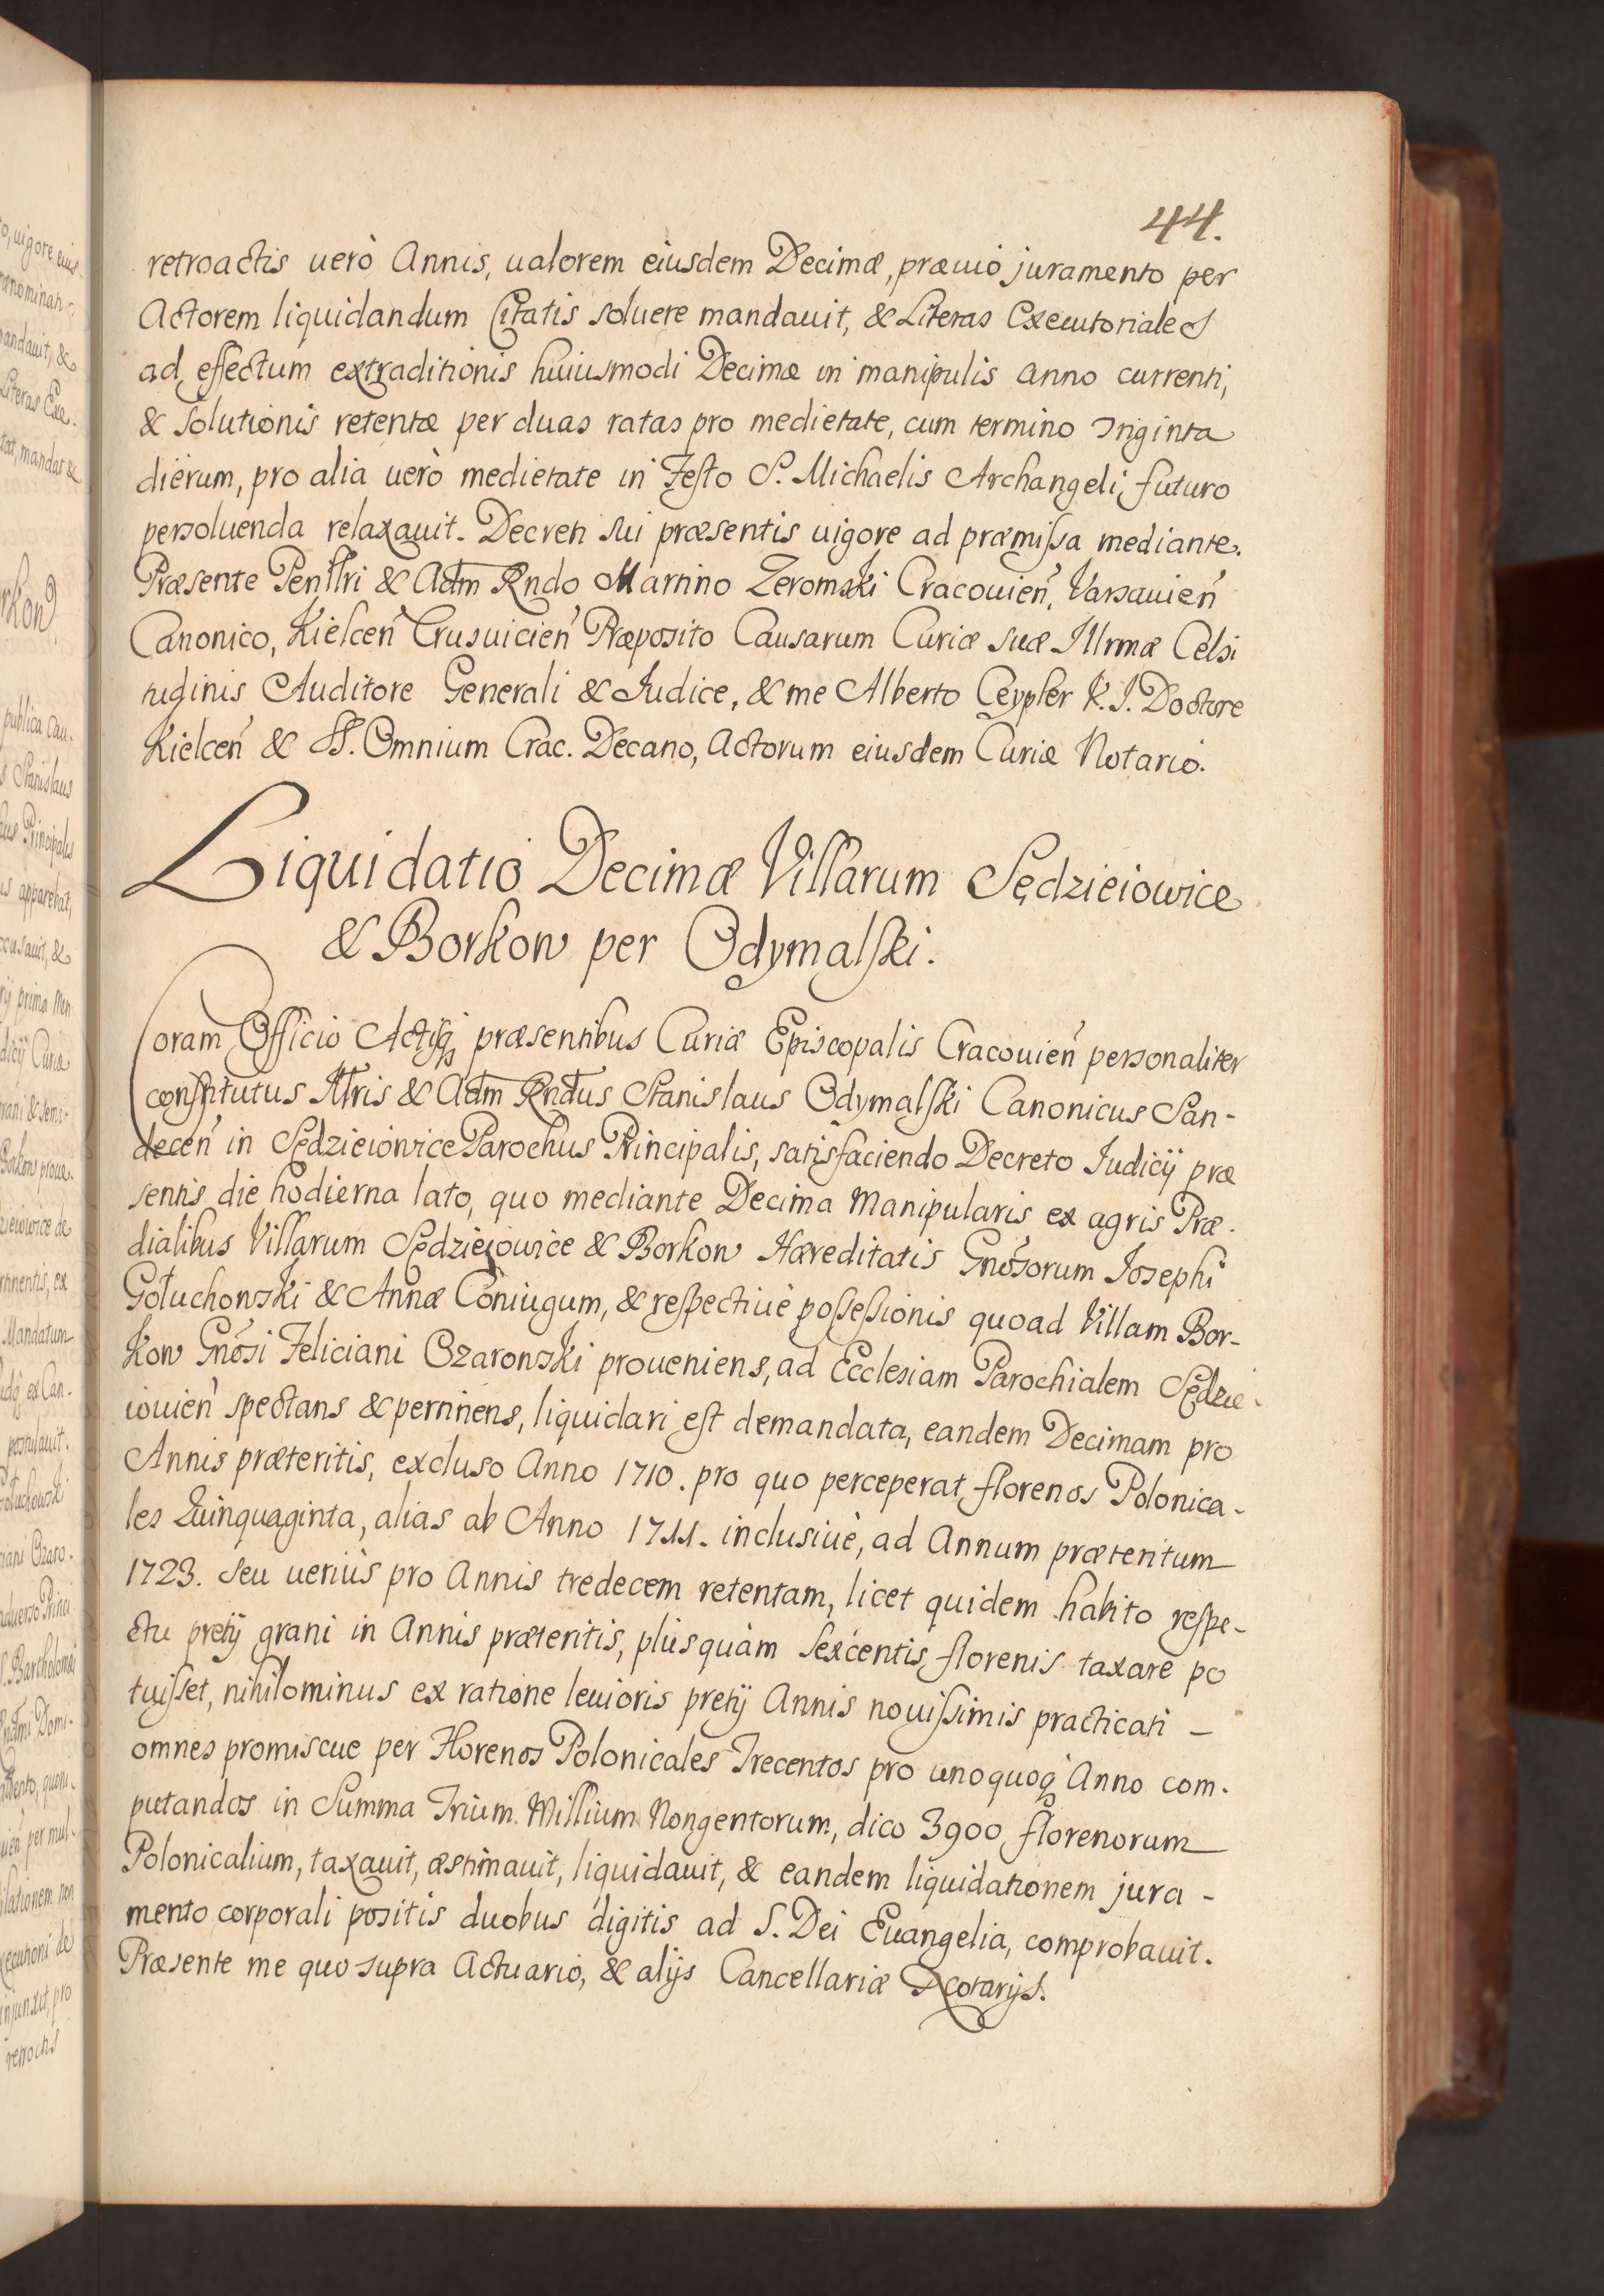 44.
retroactis uerò Annis, ualorem eiusdem Decimæ, præuio juramento per
Actorem liquidandum Citatis soluere mandauit, & Literas Executoriales
ad effectum extraditionis huiusmodi Decimæ in manipulis anno currenti,
& solutionis retentæ per duas ratas pro medietate, cum termino Triginta
dierum, pro alia uerò medietate in Festo S. Michaelis Archangeli futuro
persoluenda relaxauit. Decreti sui præsentis uigore ad præmissa mediante.
Præsente Penllri & Adm Rndo Martino Zeromski Cracouień, Varsauień
Canonico, Kielceń Crusuicień Præposito Causarum Curiæ suæ Illrmæ Celsi
tudinis Auditore Generali & Judice, & me Alberto Ceypler V. J. Doctore
Kielceń & SS. Omnium Crac. Decano, Actorum eiusdem Curiæ Notario.
Liquidatio Decimæ Villarum Sędzieiowice
& Borkow per Odymalski.
Coram Officio Actisq præsentibus Curiæ Episcopalis Cracouień personaliter
constitutus Illris & Adm Rndus Stanislaus Odymalski Canonicus San-
deceń in Sędzieiowice Parochus Principalis, satisfaciendo Decreto Judicij præ
sentis die hodierna lato, quo mediante Decima Manipularis ex agris Præ-
dialibus Villarum Sędzieiowice & Borkow Hæreditatis Gnosorum Josephi
Gołuchowski & Annæ Coniugum, & respectiuè possessionis quoad Villam Bor-
kow Gnosi Feliciani Ozarowski proueniens, ad Ecclesiam Parochialem Sędzie-
iouień spectans & pertinens, liquidari est demandata, eandem Decimam pro
Annis præteritis, excluso Anno 1710. pro quo perceperat florenos Polonica-
les Quinquaginta, alias ab Anno 1711. inclusiuè, ad Annum præteritum
1723. seu ueriùs pro Annis tredecem retentam, licet quidem habito respe-
ctu pretij grani in Annis præteritis, plùs quàm sexcentis florenis taxare po
tuisset, nihilominus ex ratione leuioris pretij Annis nouissimis practicati –
omnes promiscue per Florenos Polonicales Trecentos pro unoquoq Anno com-
putandos in Summa Trium Millium Nongentorum, dico 3900 florenorum
Polonicalium, taxauit, æstimauit, liquidauit, & eandem liquidationem jura-
mento corporali positis duobus digitis ad S. Dei Euangelia, comprobauit.
Præsente me quo supra Actuario, & alijs Cancellariæ Notarijs.